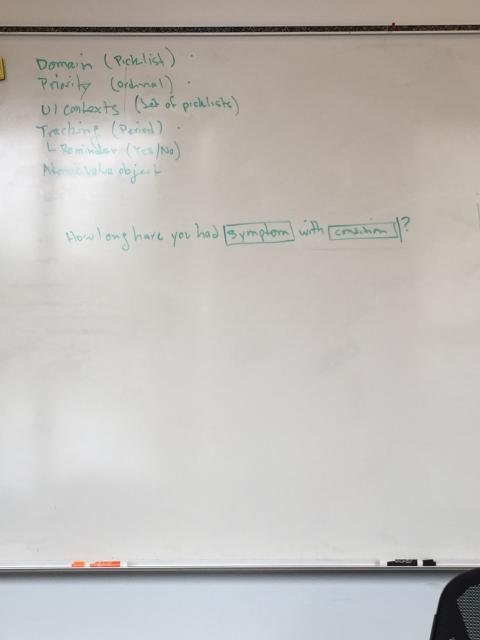 Domain (Picklist)
Priority (ordinal)
UI contexts (set of picklists)
Tracking (Period)
└ Reminder (Yes/No)
Atomic value object
How long have you had symptom with condition ?